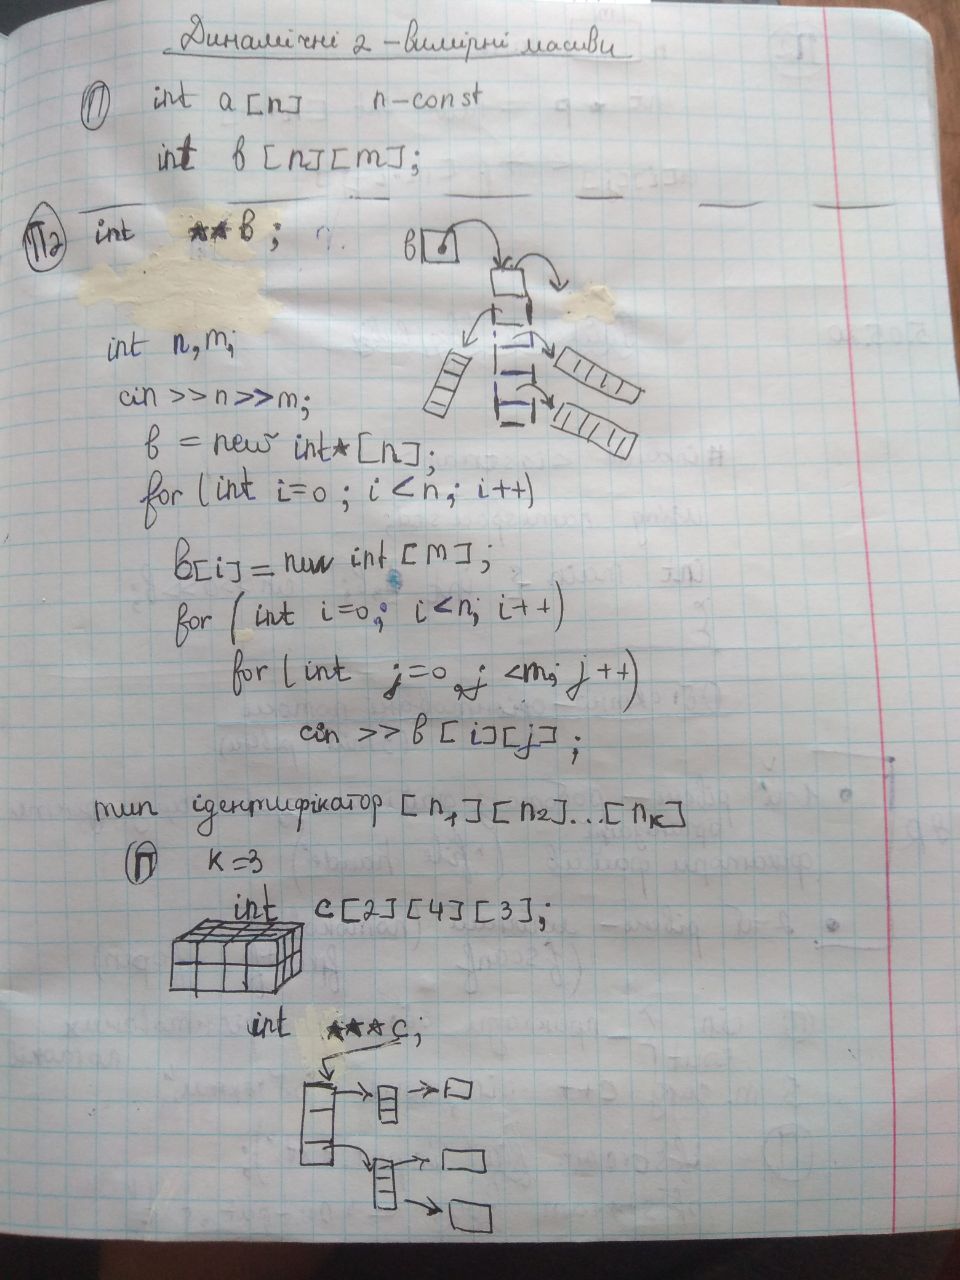 Динамічні 2-вимірні масиви
П int a[n] n-const
int b[n][m];
П2 int **b; b
int n,m;
cin >>n>>m;
b = new int*[n];
for (int i=0; i<n; i++)
b[i] = new int [m];
for (int i=0; i<n; i++)
for (int j=0, j<m; j++)
cin >> b[i][j];
тип ідентифікатор [n₁][n₂]...[nк]
П к=3
int c[2][4][3];
int ***c;